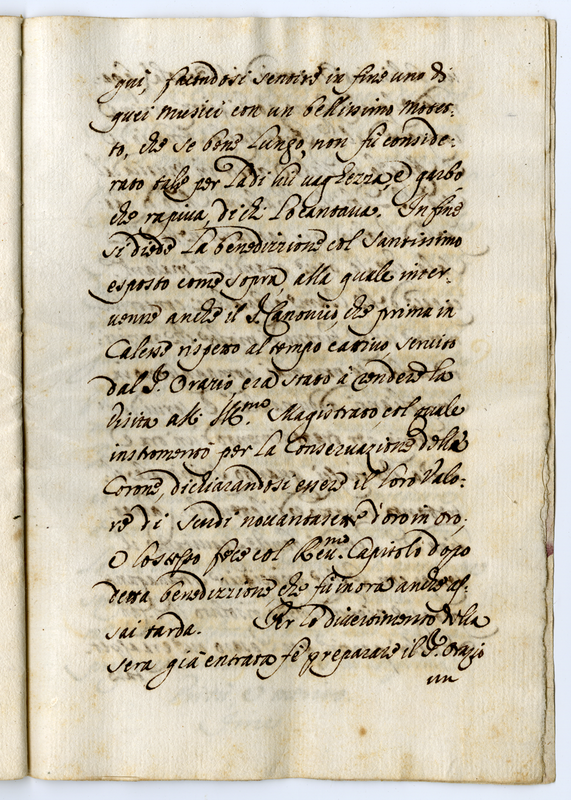 qui, facendosi sentire in fine uno di
quei musici con un bellissimo motet-
to, che se bene lungo, non fù conside-
rato tale per la di lui vaghezza, e garbo
che rapiva di chi lo cantava. In fine
si diede la benedizzione col Santissimo
esposto come sopra, alla quale inter-
venne anche il S. Canonico, che prima in
Calesse rispetto al tempo cattivo, servito
dal S. Orazio era stato à rendere la
visita all' Ill.mo Magistrato, col quale
instromentò per la Conservazione delle
Corone, dichiarandosi essere il loro valo-
re di Scudi novantasette d'oro in oro;
e lo stesso fece col Reu.mo Capitolo dopo
detta benedizzione che fù in ora anche as-
sai tarda. Per lo divertimento della
sera già entrata fè preparare il S. Orazio
un